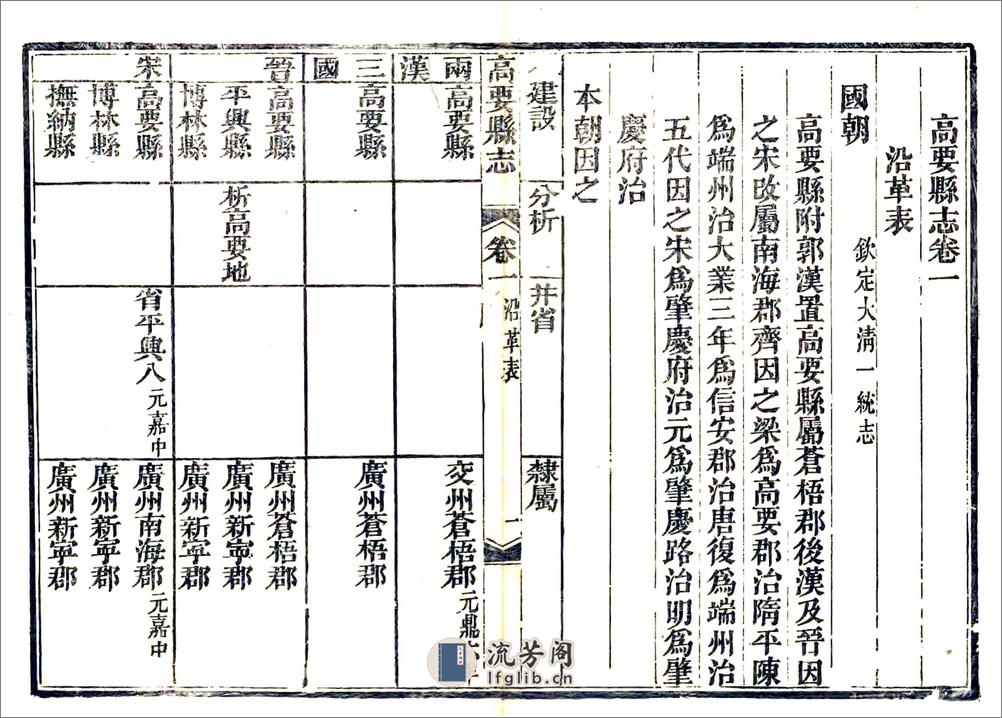 高要縣志卷一
沿革表
欽定大淸一統志
國朝
高要縣附郭漢置高要縣屬蒼梧郡後漢及晉因
之宋改屬南海郡齊因之梁爲高要郡治隋平陳
爲端州治大業三年爲信安郡治唐復爲端州治
五代因之宋爲肇慶府治元爲肇慶路治明爲肇
慶府治
本朝因之
建設 分析 幷省 隸屬
高要縣志 卷一 沿革表 一
兩漢
高要縣 交州蒼梧郡元鼎六
三國
高要縣 廣州蒼梧郡
晉
高要縣 廣州蒼梧郡
平興縣 析高要地 廣州新寧郡
博林縣 廣州新寧郡
宋
高要縣 省平興入元嘉中 廣州南海郡元嘉中
博林縣 廣州新寧郡
撫納縣 廣州新寧郡
流芳阁
lfglib.cn